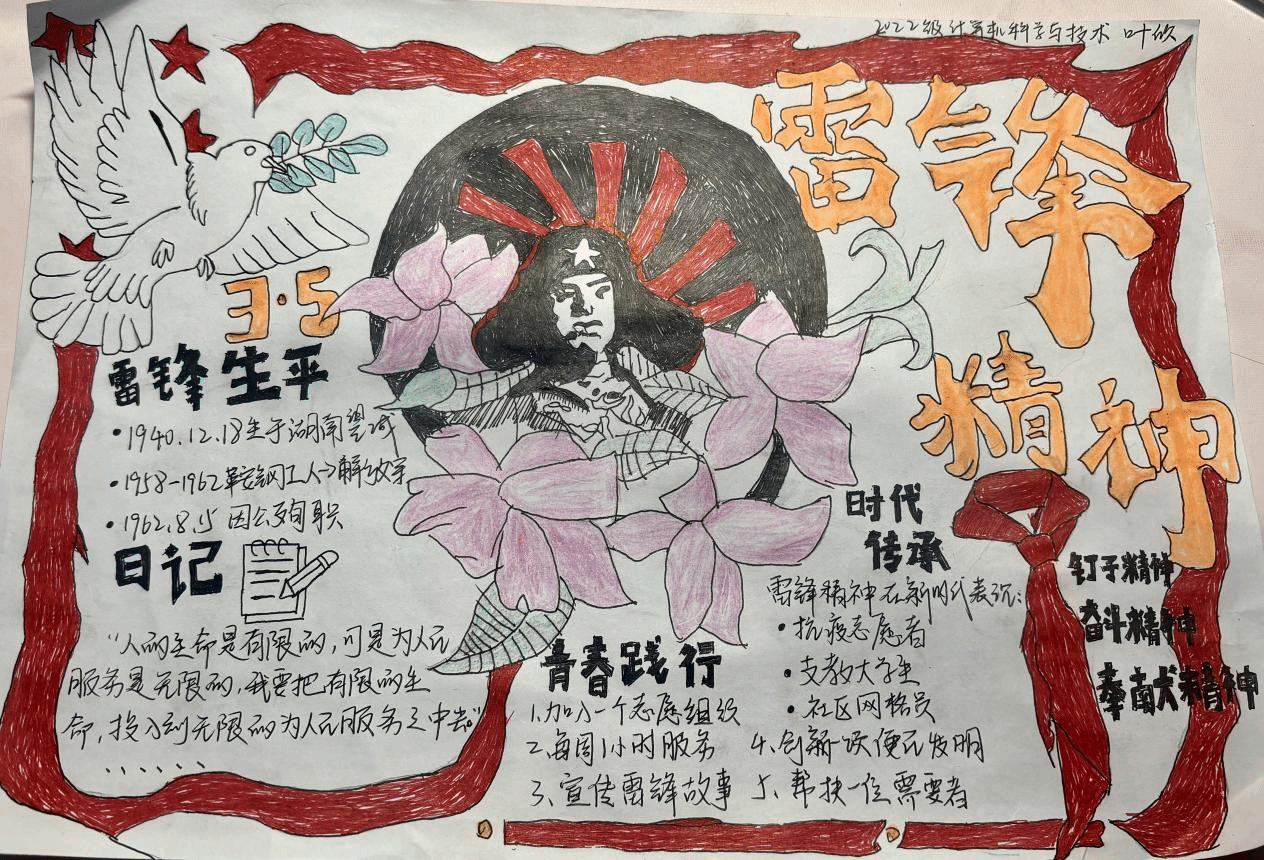 2022级计算机科学与技术 叶欣
雷锋
精神
3·5
雷锋生平
•1940.12.18生于湖南望城
•1958-1962鞍钢工人→解放军
•1962.8.15因公殉职
日记
“人的生命是有限的,可是为人民
服务是无限的,我要把有限的生
命,投入到无限的为人民服务之中去。”
......
时代
传承
雷锋精神在新时代表现:
•抗疫志愿者
•支教大学生
•社区网格员
钉子精神
奋斗精神
奉献精神
青春践行
1.加入一个志愿组织
2.每周1小时服务
3.宣传雷锋故事
4.创新项便民发明
5.帮扶一位需要者